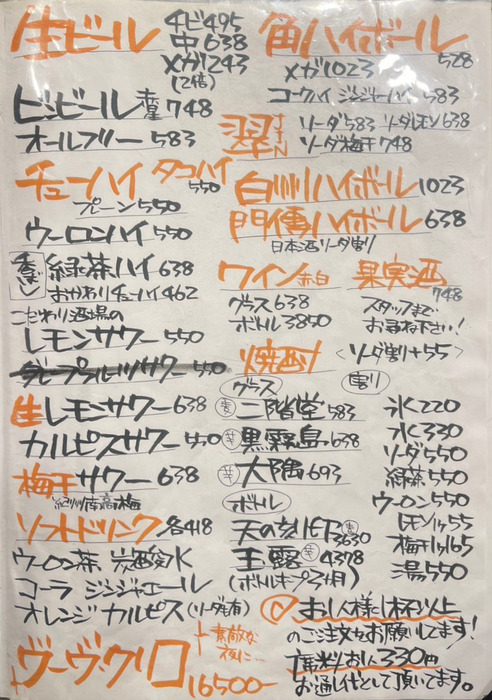 生ビール チビ495
中638
メガ1243
(2倍)
ビンビール 赤星748
オールフリー583
チューハイ タコハイ
550
プレーン550
ウーロンハイ550
緑茶ハイ638
おかわりチューハイ462
こだわり酒場の
レモンサワー550
グレープフルーツサワー550
生レモンサワー638
カルピスサワー550
梅干サワー638
紀州南高梅
ソフトドリンク各418
ウーロン茶 炭酸水
コーラ ジンジャエール
オレンジ カルピス(ソーダ有)
ヴーヴ・クリコ
素敵な
夜に…
16500-
角ハイボール
528
メガ1023
コークハイ ジンジャーハイ583
翠 ジン ソーダ583 ソーダレモン638
ソーダ梅干748
白州ハイボール1023
門傳ハイボール638
日本酒ソーダ割り
ワイン 赤白
グラス638
ボトル3850
果実酒
748
スタッフまで
お尋ね下さい!
<ソーダ割り+55>
焼酎
グラス
麦 二階堂583
芋 黒霧島638
芋 大隅693
ボトル
天の刻印 麦3630
玉露 芋4378
(ボトルキープ3ヶ月)
割り
氷220
水330
ソーダ550
緑茶550
ウーロン550
レモン1ヶ55
梅干1ヶ165
湯550
お1人様1杯以上
のご注文をお願いしてます!
席料お1人330円
お通し代として頂いてます。